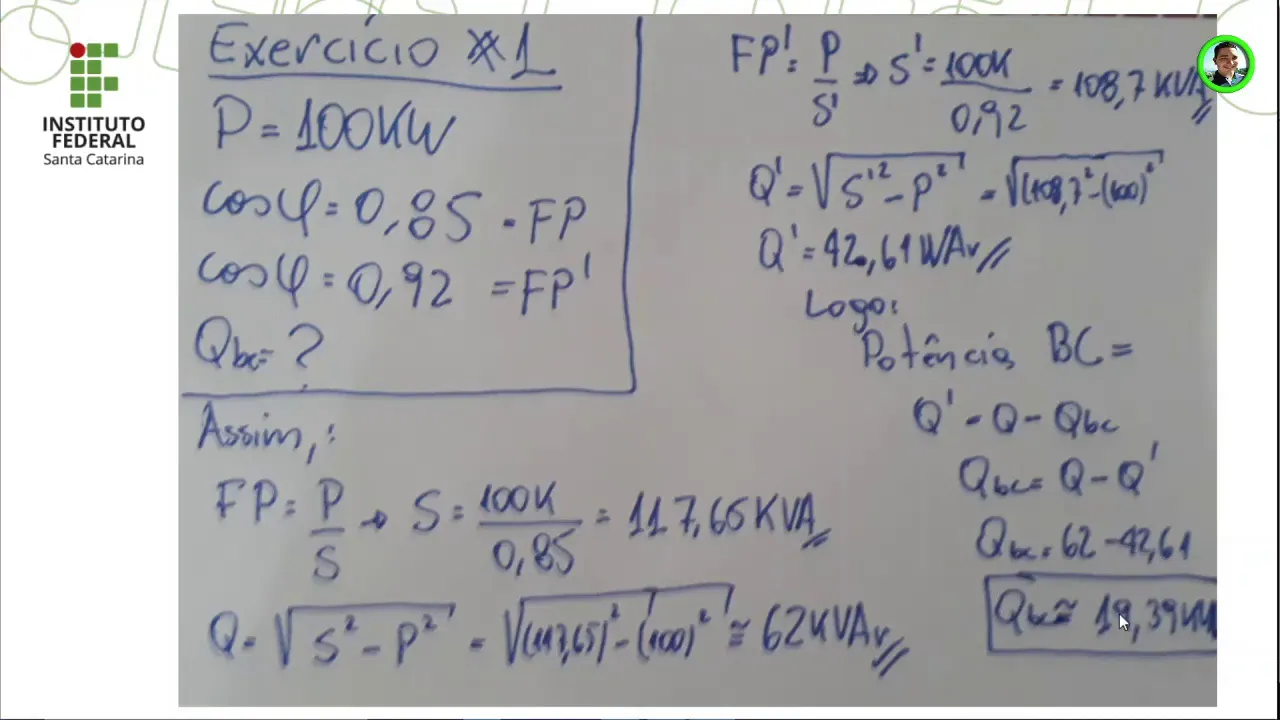 INSTITUTO
FEDERAL
Santa Catarina
Exercício *1
P = 100KW
cosφ = 0,85 = FP
cosφ = 0,92 = FP'
Qbc = ?
Assim,:
FP = P/S → S = 100K/0,85 = 117,65 KVA
Q = √S² - P² = √(117,65)² - (100)² ≅ 62KVAr
FP' = P/S' ⇒ S' = 100K/0,92 = 108,7 KVA
Q' = √S'² - P² = √(108,7² - (100)²
Q' = 42,61 KVAr
Logo:
Potência BC =
Q' = Q - Qbc
Qbc = Q - Q'
Qbc = 62 - 42,61
Qbc ≅ 19,39